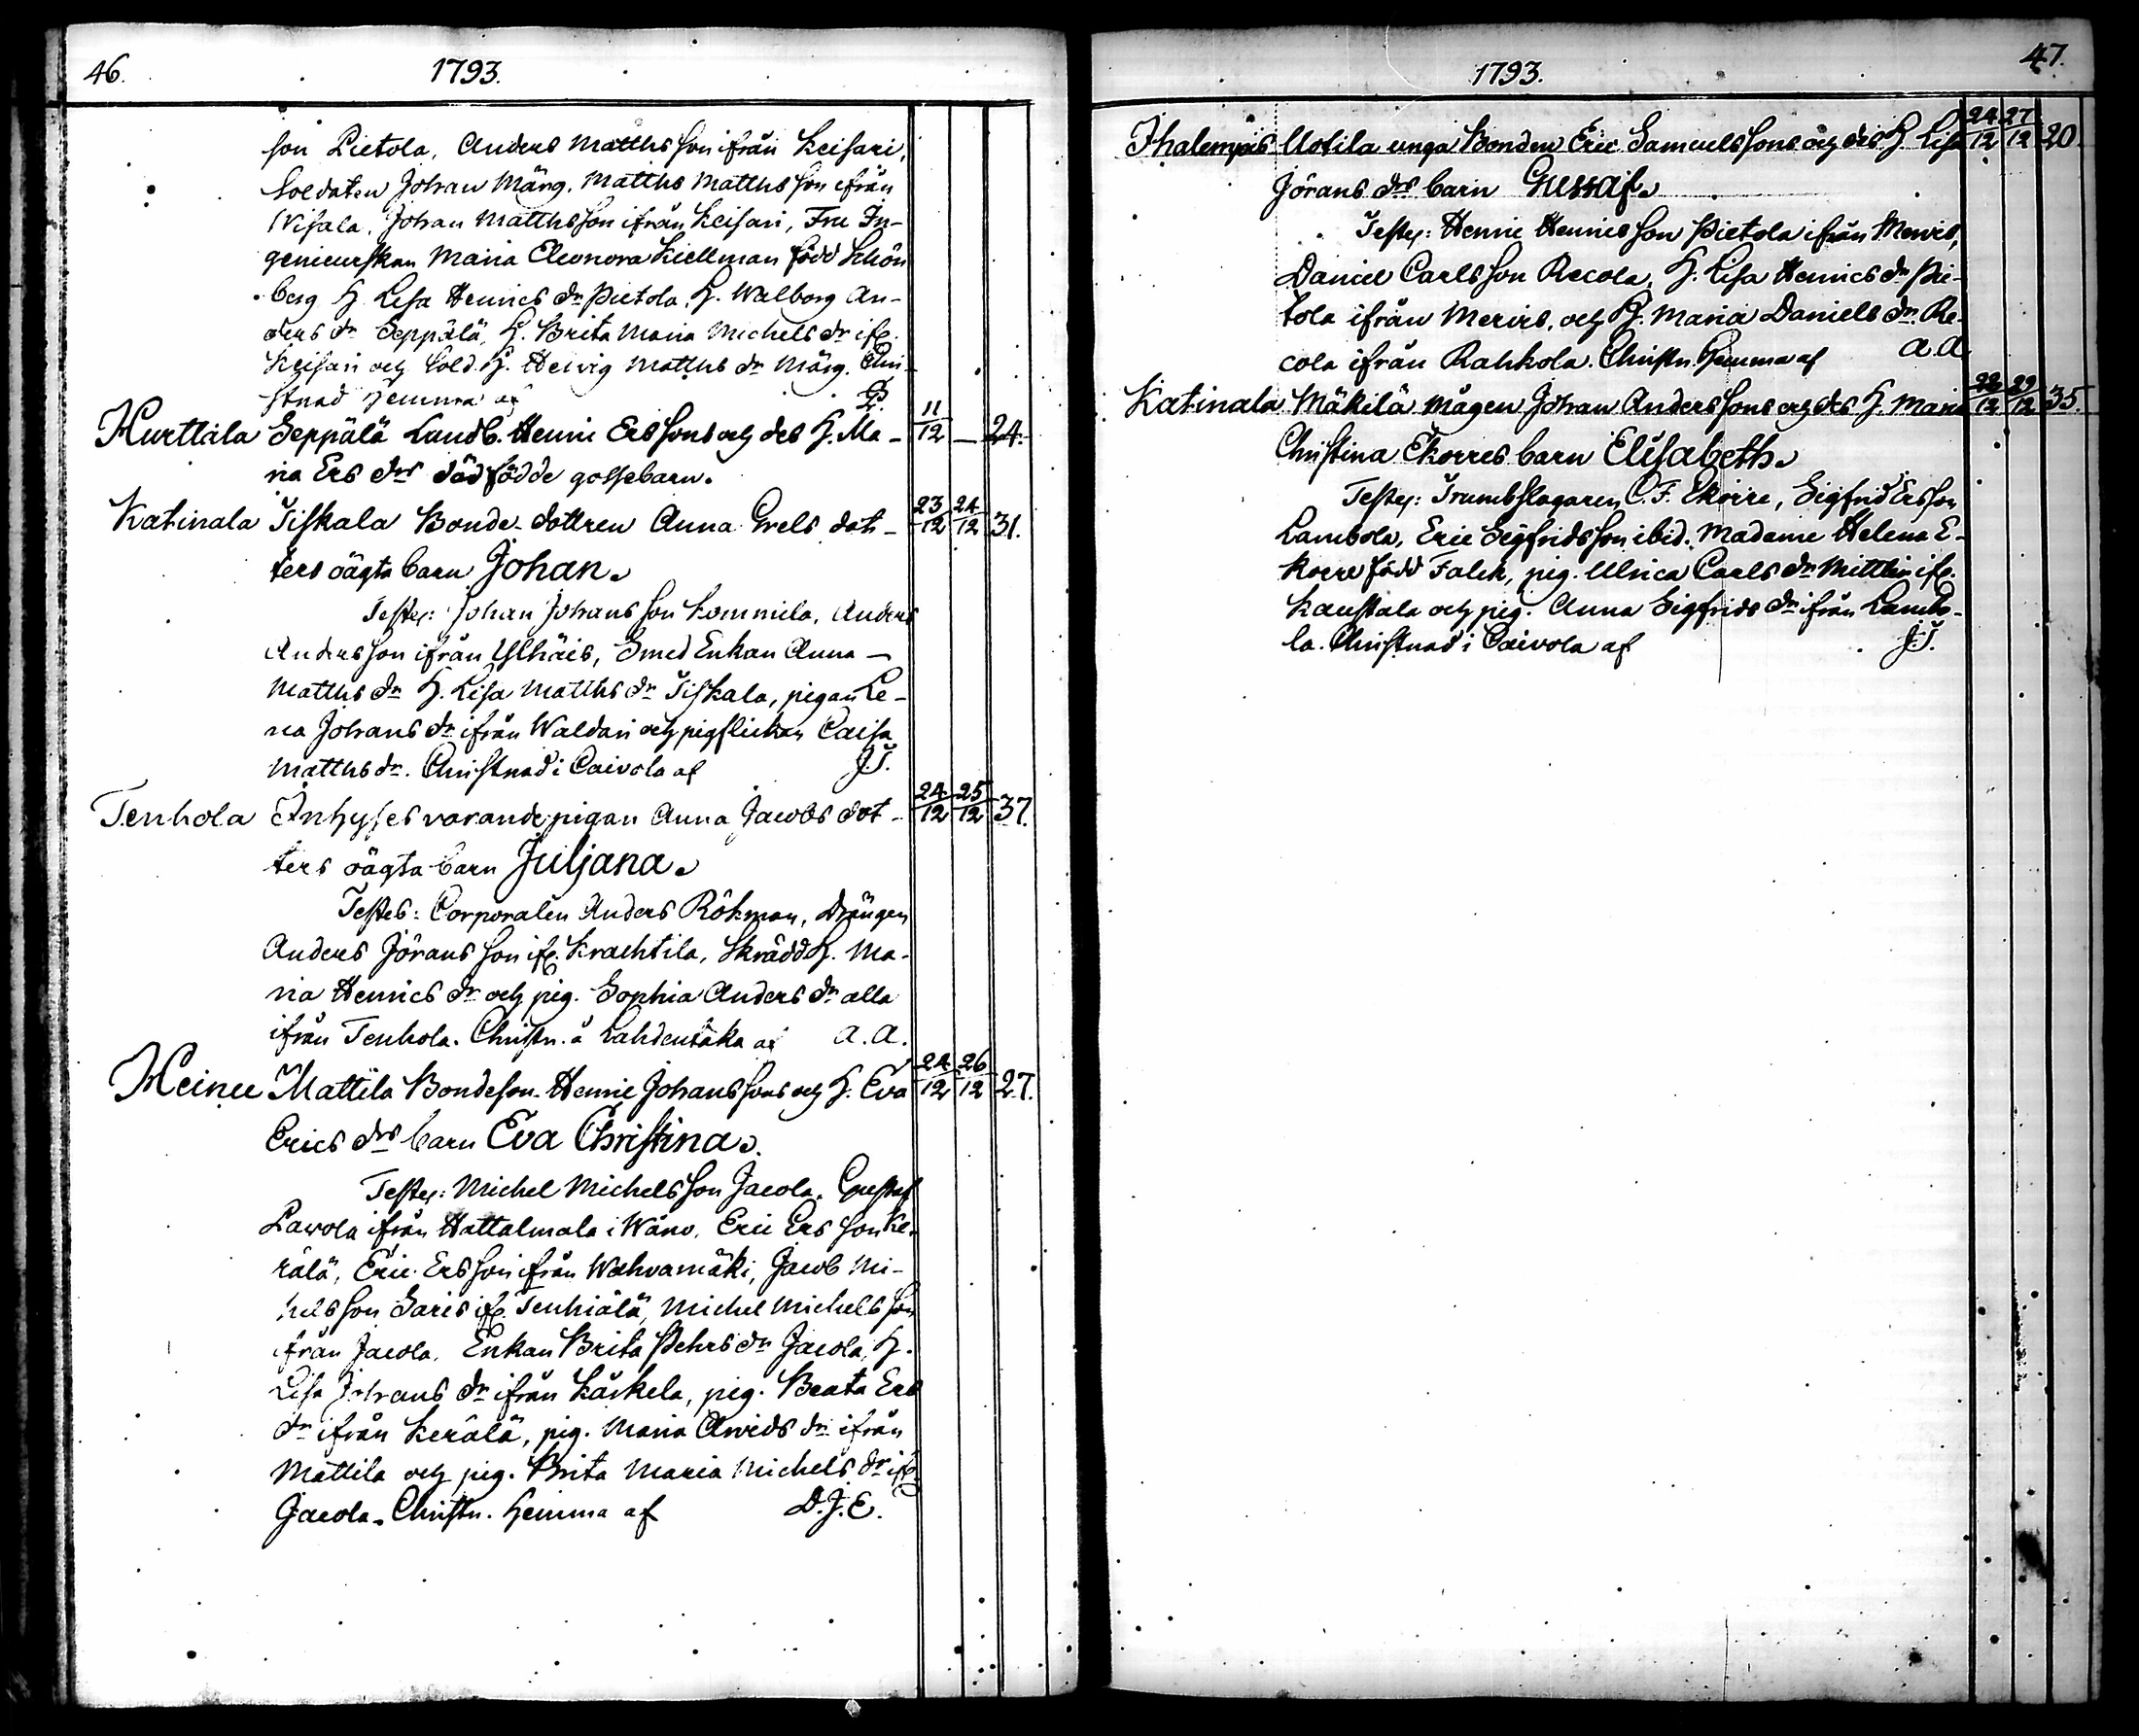 46. 1793.
son Pietola, Anders Matthsson ifrån Keisari,
Soldaten Johan Märg. Matths Matthsson ifrån
Nisala, Johan Matthsson ifrån Keisari, Fru In-
genieurskan Maria Eleonora Kiellman född Schön
berg H. Lisa Henrics dr Pietola, H. Walborg An-
ders dr Seppälä, H. Brita Maria Michels dr ifr.
Keisari och Sold. H. Hewig Matths dr Märg. Chri-
stnad hemma af
Hurttala Seppälä Landb. Henric Erssons och des H. Ma- 11/12 — 24.
ria Ers drs dödfödde gossebarn.
Katinala Tiskala Bonde-dottren Anna Grels dott- 23/12 24/12 31.
ters oägta barn Johan.
Testes: Johan Johansson Kommila, Anders
Andersson ifrån Ylhäis, Smed Enkan Anna
Matths dr H. Lisa Matths dr Tiskala, pigan Le-
na Johans dr ifrån Waldari och pigflickan Caisa
Matthsdr. Christnad i Caivola af J.T.
Tenhola Inhyses varande pigan Anna Jacobs dot- 24/12 25/12 37.
ters oägta barn Juljana.
Testes: Corporalen Anders Rökman, Drängen
Anders Jöransson ifr. Krachtila, Skrädd. H. Ma-
ria Henrics dr och pig. Sophia Anders dr alla
ifrån Tenhola. Christn. å Lahdentaka af A.A.
Heinu Mattila Bondeson Henric Johanssons och H. Eva 24/12 26/12 27.
Erics drs barn Eva Christina.
Testes: Michel Michelsson Jacola, Gustaf
Lawola ifrån Hattalmala i Wånå, Eric Ersson Ke-
rälä, Eric Ersson ifrån Wahvamäki, Jacob Mi-
chelsson Saris ifr. Tenhiälä, Michel Michelsson
ifrån Jacola, Enkan Brita Pehrs dr Jacola, H.
Lisa Johans dr ifrån Käskela, pig. Beata Ers
dr ifrån Kerälä, pig. Maria Arvids dr ifrån
Mattila och pig. Brita Maria Michels dr ifr.
Jacola. Christn. hemma af D.J.E.
1793. 47.
Ihalempis Uotila unga Bonden Eric Samuelssons och des H. Lisa 24/12 27/12 20
Jörans drs barn Gustaf.
Testes: Henric Henricsson Pietola ifrån Mervis,
Daniel Carlsson Recola, H. Lisa Henrics dr Pie-
tola ifrån Mervis, och H. Maria Daniels dr Re-
cola ifrån Rahkola. Christn. hemma af A.A.
Katinala Mäkilä mågen Johan Anderssons och des H. Maria 22/12 29/12 35.
Christina Ekorres barn Elisabeth.
Testes: Trumbslagaren C.F. Ekorre, Sigfrid Ersson
Lambola, Eric Sigfridsson ibid. Madame Helena E-
korre född Falck, pig. Ulrica Carls dr Mittler ifr.
Kaustala och pig. Anna Sigfrids dr ifrån Lambo-
la. Christnad i Caivola af J.T.